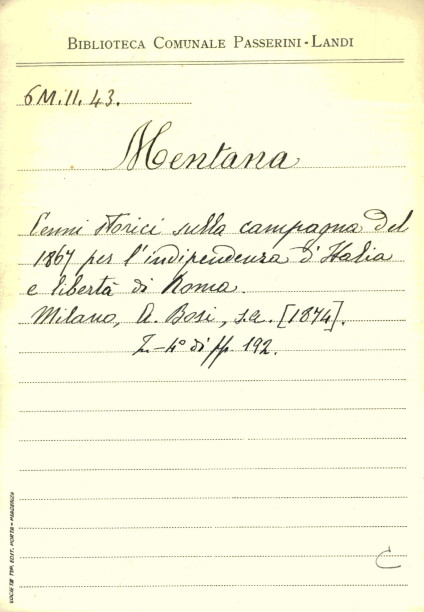 BIBLIOTECA COMUNALE PASSERINI-LANDI
6M.II.43.
Mentana
Cenni storici sulla campagna del
1867 per l'indipendenza d'Italia
e libertà di Roma.
Milano, A. Bosi, s.a. [1874].
-4° di pp. 192.
C
SOCIETÀ TIP. EDIT. PORTA - PIACENZA